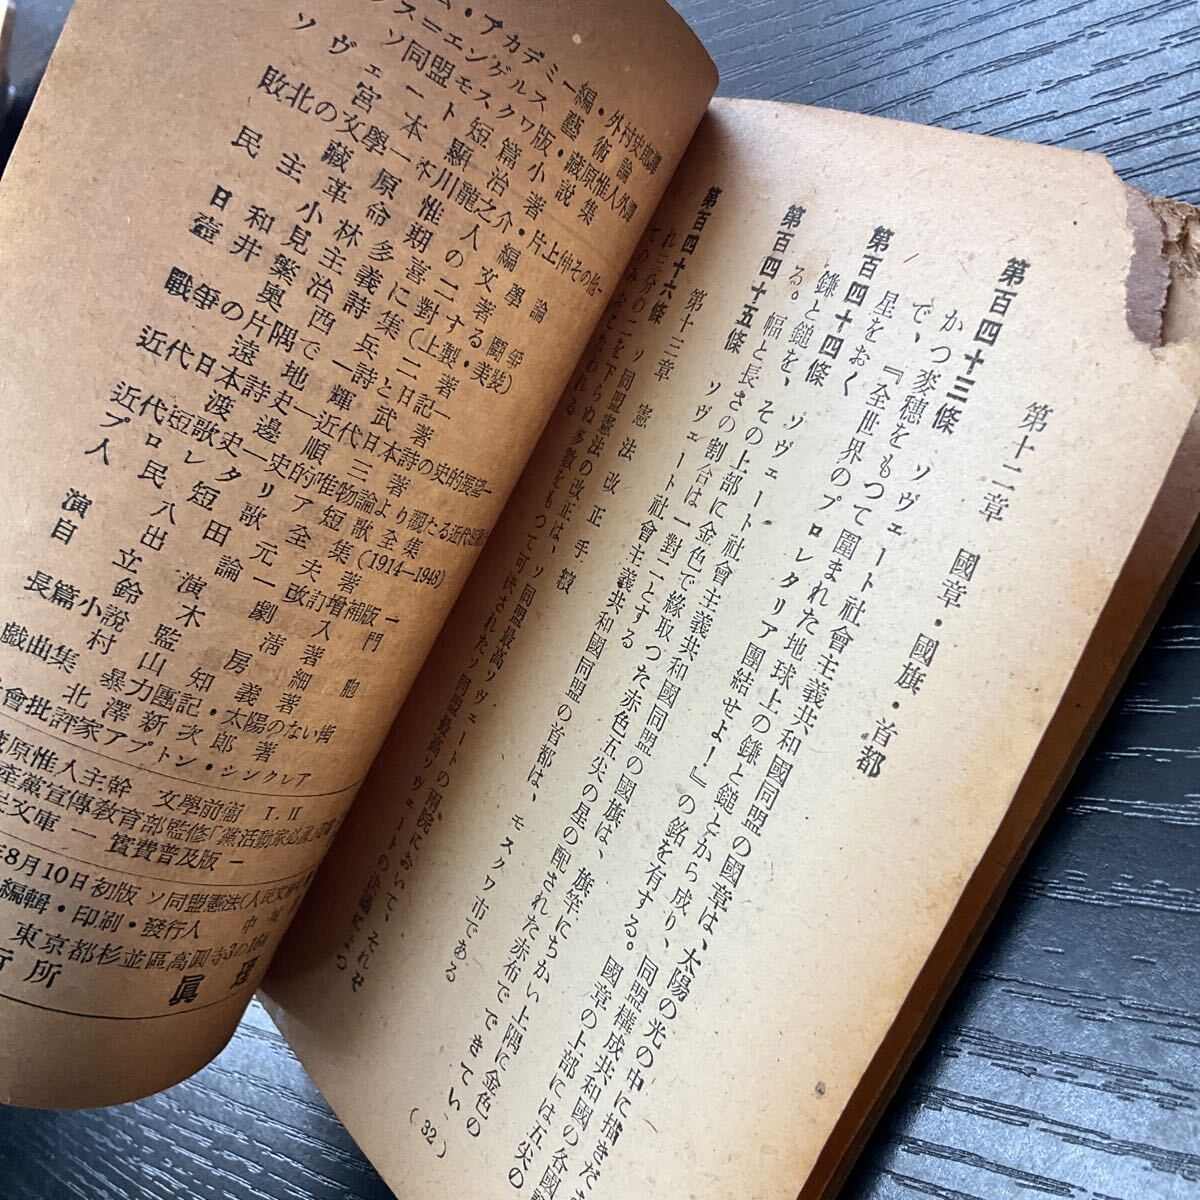 第十二章　國章・國旗・首都
第百四十三條　ソヴェート社會主義共和國同盟の國章は、太陽の光の中に描きだ
かつ麥穗をもつて圍まれた地球上の鎌と鎚とから成り、同盟構成共和國の各國
で、『全世界のプロレタリア團結せよ！』の銘を有する。國章の上部には五尖の
星をおく
第百四十四條　ソヴェート社會主義共和國同盟の國旗は、旗竿にちかい上隅に金色の
鎌と鎚を、その上部に金色で緣取つた赤色五尖の星の配された赤布でできてい
る。幅と長さの割合は一對二とする
第百四十五條　ソヴェート社會主義共和國同盟の首都は、モスクワ市である
第十三章　憲法改正手續
第百四十六條　ソ同盟憲法の改正は、ソ同盟最高ソヴェートの兩院において、それぞ
れ三分の二を下らぬ多數をもつて可決されたソ同盟最高ソヴェートの決議によつ
てのみおこなわれる
(32)
ム・アカデミー編・外村史郞譯
スエンゲルス藝術論
ソ同盟モスクワ版・藏原惟人外譯
ソヴェート短篇小說集
宮本顯治著
敗北の文學―芥川龍之介・片上伸その他―
藏原惟人編
民主革命期の文學論
小林多喜二著
日和見主義に對する鬪爭
壺井繁治詩集(上製・美裝)
奧西一二著
戰爭の片隅で―詩と日記―
遠地輝武著
近代日本詩史―近代日本詩の史的展望―
渡邊順三著
近代短歌史―史的唯物論より觀たる近代短歌
プロレタリア短歌全集(1914―1948)
八田元夫著
演出論―改訂增補版―
自立演劇入門
鈴木淸著
長篇小說　監房細胞
村山知義著
戲曲集　暴力團記・太陽のない街
北澤新次郞著
會批評家アプトン・シンクレア
藏原惟人主幹　文學前衞　I. II
產黨宣傳敎育部監修「黨活動家必
文庫 ― 實費普及版 ―
年8月10日初版　ソ同盟憲法(人民文
編輯・印刷・發行人
東京都杉並區高圓寺3の16
行所　眞理